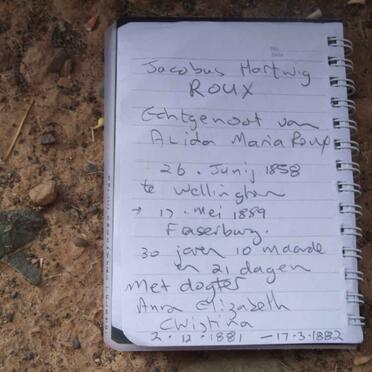 Jacobus Hartwig
ROUX
Echtgenoot van
Alida Maria Roux
26 . Junij 1858
te Wellington
→ 17 . Mei 1889
Fraserburg.
30 jaren 10 maande
en 21 dagen
Met dogter
Anna Elizabeth
Christina
2 . 12 . 1881 — 17 . 3 . 1882